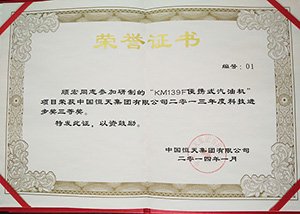 荣誉证书
编号：01
顺宏同志参加研制的“KM139F便携式汽油机”
项目荣获中国恒天集团有限公司二零一三年度科技进
步奖三等奖。
特发此证，以资鼓励。
中国恒天集团有限公司
二零一四年一月